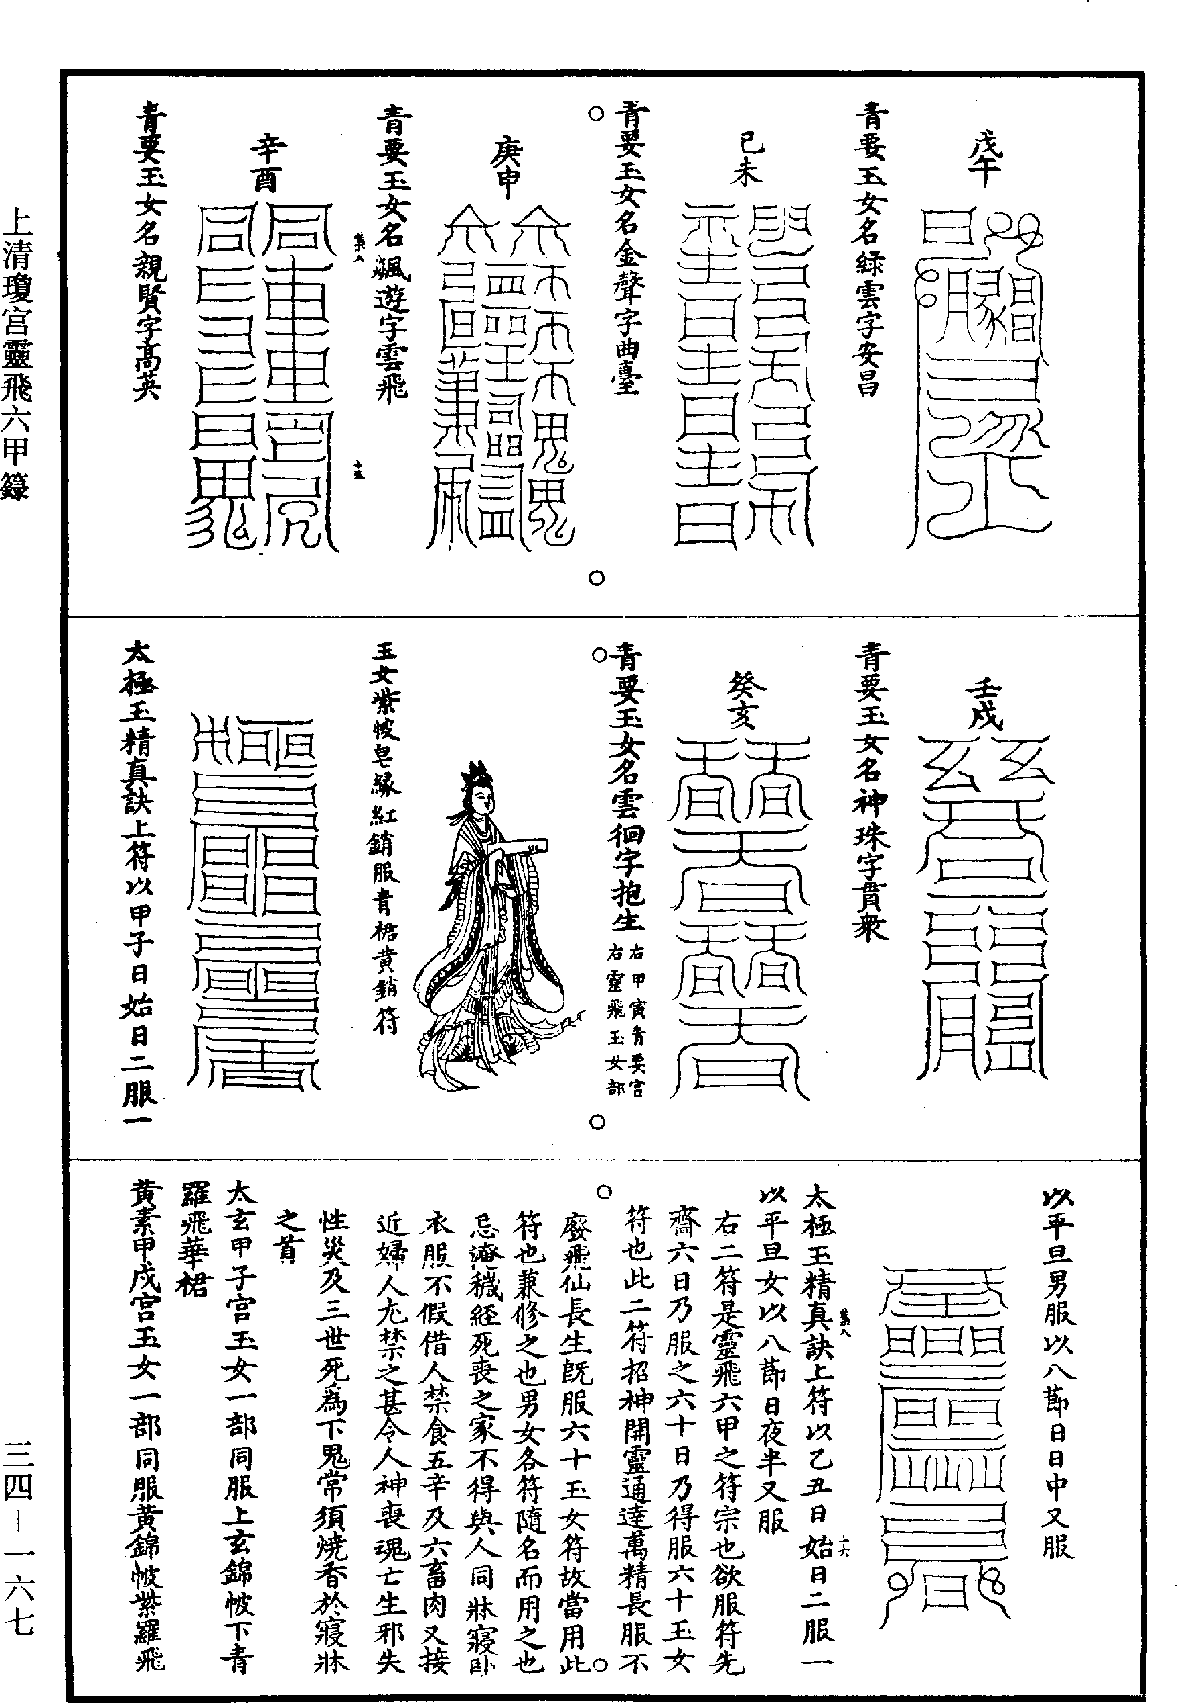 上清瓊宮靈飛六甲籙
三四－一六七
戊午
青要玉女名綠雲字安昌
己未
青要玉女名金聲字曲臺
庚申
青要玉女名飆遊字雲飛
集八
十五
辛酉
青要玉女名親賢字高英
壬戌
青要玉女名神珠字貫衆
癸亥
青要玉女名雲徊字抱生
右甲寅青要宮
右靈飛玉女部
玉女紫帔皂緣紅銷服青裙黃銷符
太極玉精真訣上符以甲子日始日二服一
以平旦男服以八節日日中又服
太極玉精真訣上符以乙丑日始日二服一
集八
十六
以平旦女以八節日夜半又服
右二符是靈飛六甲之符宗也欲服符先
齋六日乃服之六十日乃得服六十玉女
符也此二符招神開靈通達萬精長服不
廢飛仙長生旣服六十玉女符故當用此
符也兼修之也男女各符隨名而用之也
忌淹穢經死喪之家不得與人同牀寢卧
衣服不假借人禁食五辛及六畜肉又接
近婦人尤禁之甚令人神喪魂亡生邪失
性災及三世死爲下鬼常須燒香於寢牀
之首
太玄甲子宮玉女一部同服上玄錦帔下青
羅飛華裙
黃素甲戌宮玉女一部同服黃錦帔紫羅飛